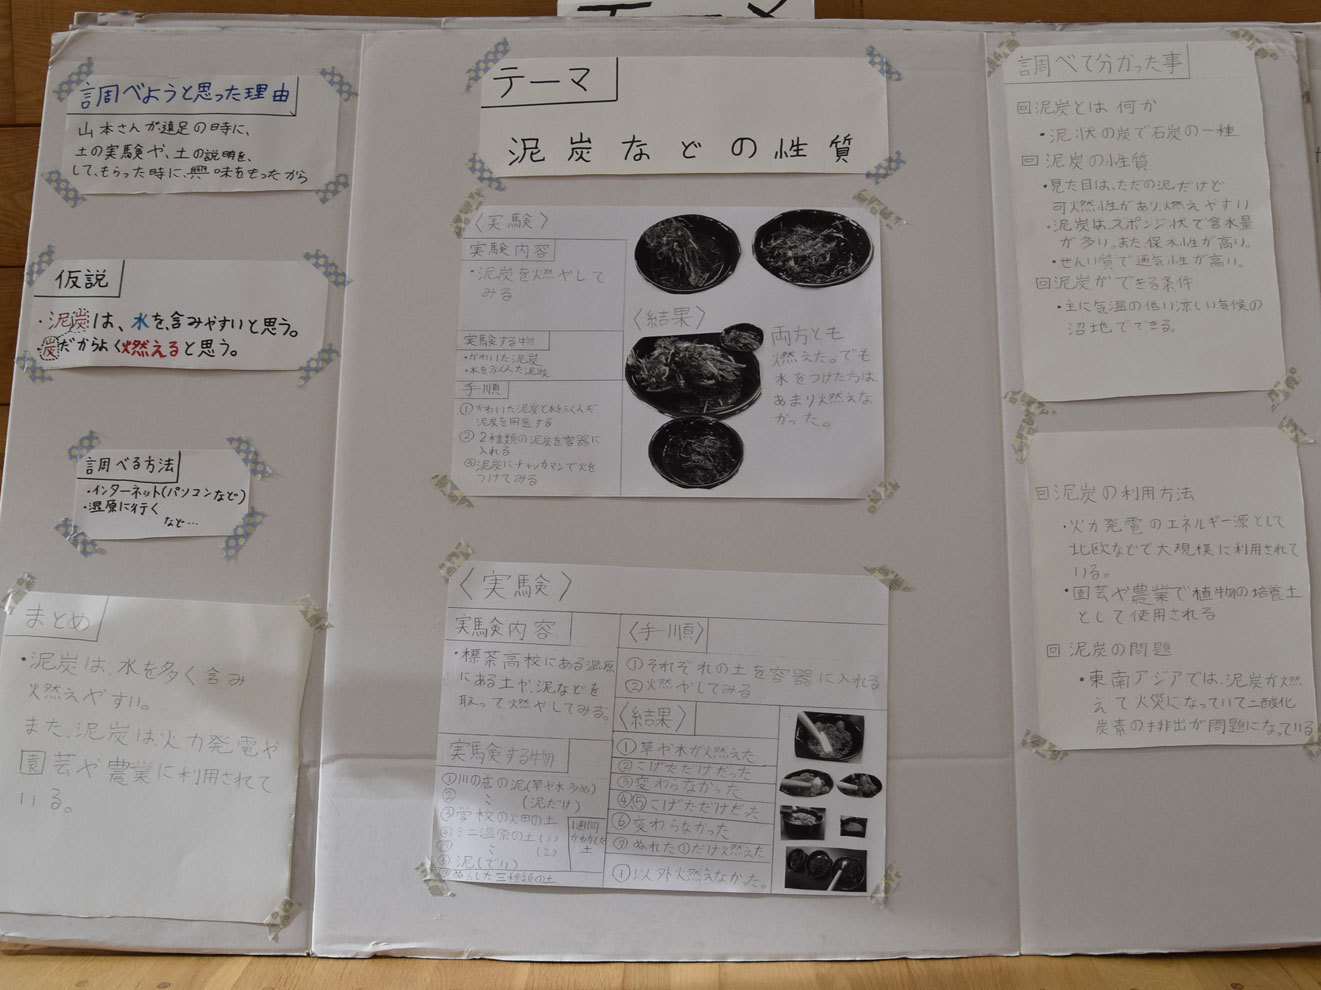 テーマ
調べようと思った理由
山本さんが遠足の時に、
土の実験や、土の説明を、
して、もらった時に、興味をもったから
仮説
・泥炭は、水を、含みやすいと思う。
炭だからよく燃えると思う。
調べる方法
・インターネット(パソコンなど)
・湿原に行く
など…
まとめ
・泥炭は、水を多く含み
燃えやすい。
また、泥炭は火力発電や
園芸や農業に利用されて
いる。
テーマ
泥炭などの性質
〈実験〉
実験内容
・泥炭を燃やして
みる
実験する物
・かわいた泥炭
・水をふくんだ泥炭
手順
①かわいた泥炭と水をふくんだ
泥炭を用意する
②2種類の泥炭を容器に
入れる
③泥炭にチャッカマンで火を
つけてみる
〈結果〉
両方とも
燃えた。でも
水をつけた方は、
あまり燃えな
かった。
〈実験〉
実験内容
・標茶高校にある湿原
にある土や、泥などを
取って燃やしてみる。
実験する物
①川の底の泥(草や木多め)
② ミ (泥だけ)
③学校の畑の土
④ミニ湿原の土(1)
⑤ ミ (2)
⑥泥(でい)
⑦ぬらした三種類の土
1週間
かわかした
土
〈手順〉
①それぞれの土を容器に入れる
②燃やしてみる
〈結果〉
①草や木が燃えた
②こげただけだった
③変わらなかった
④⑤こげただけだった
⑥変わらなかった
⑦ぬれた①だけ燃えた
①以外燃えなかった。
調べて分かった事
回泥炭とは何か
・泥状の炭で石炭の一種
回泥炭の性質
・見た目は、ただの泥だけど
可燃性があり、燃えやすい
・泥炭は、スポンジ状で含水量
が多い。また保水性が高い。
・せんい質で通気性が高い。
回泥炭ができる条件
・主に気温の低い涼しい気候の
沼地でできる。
回泥炭の利用方法
・火力発電のエネルギー源として
北欧などで大規模に利用されて
いる。
・園芸や農業で植物の培養土
として使用される
回泥炭の問題
・東南アジアでは、泥炭が燃
えて火災になっていて二酸化
炭素の排出が問題になっている